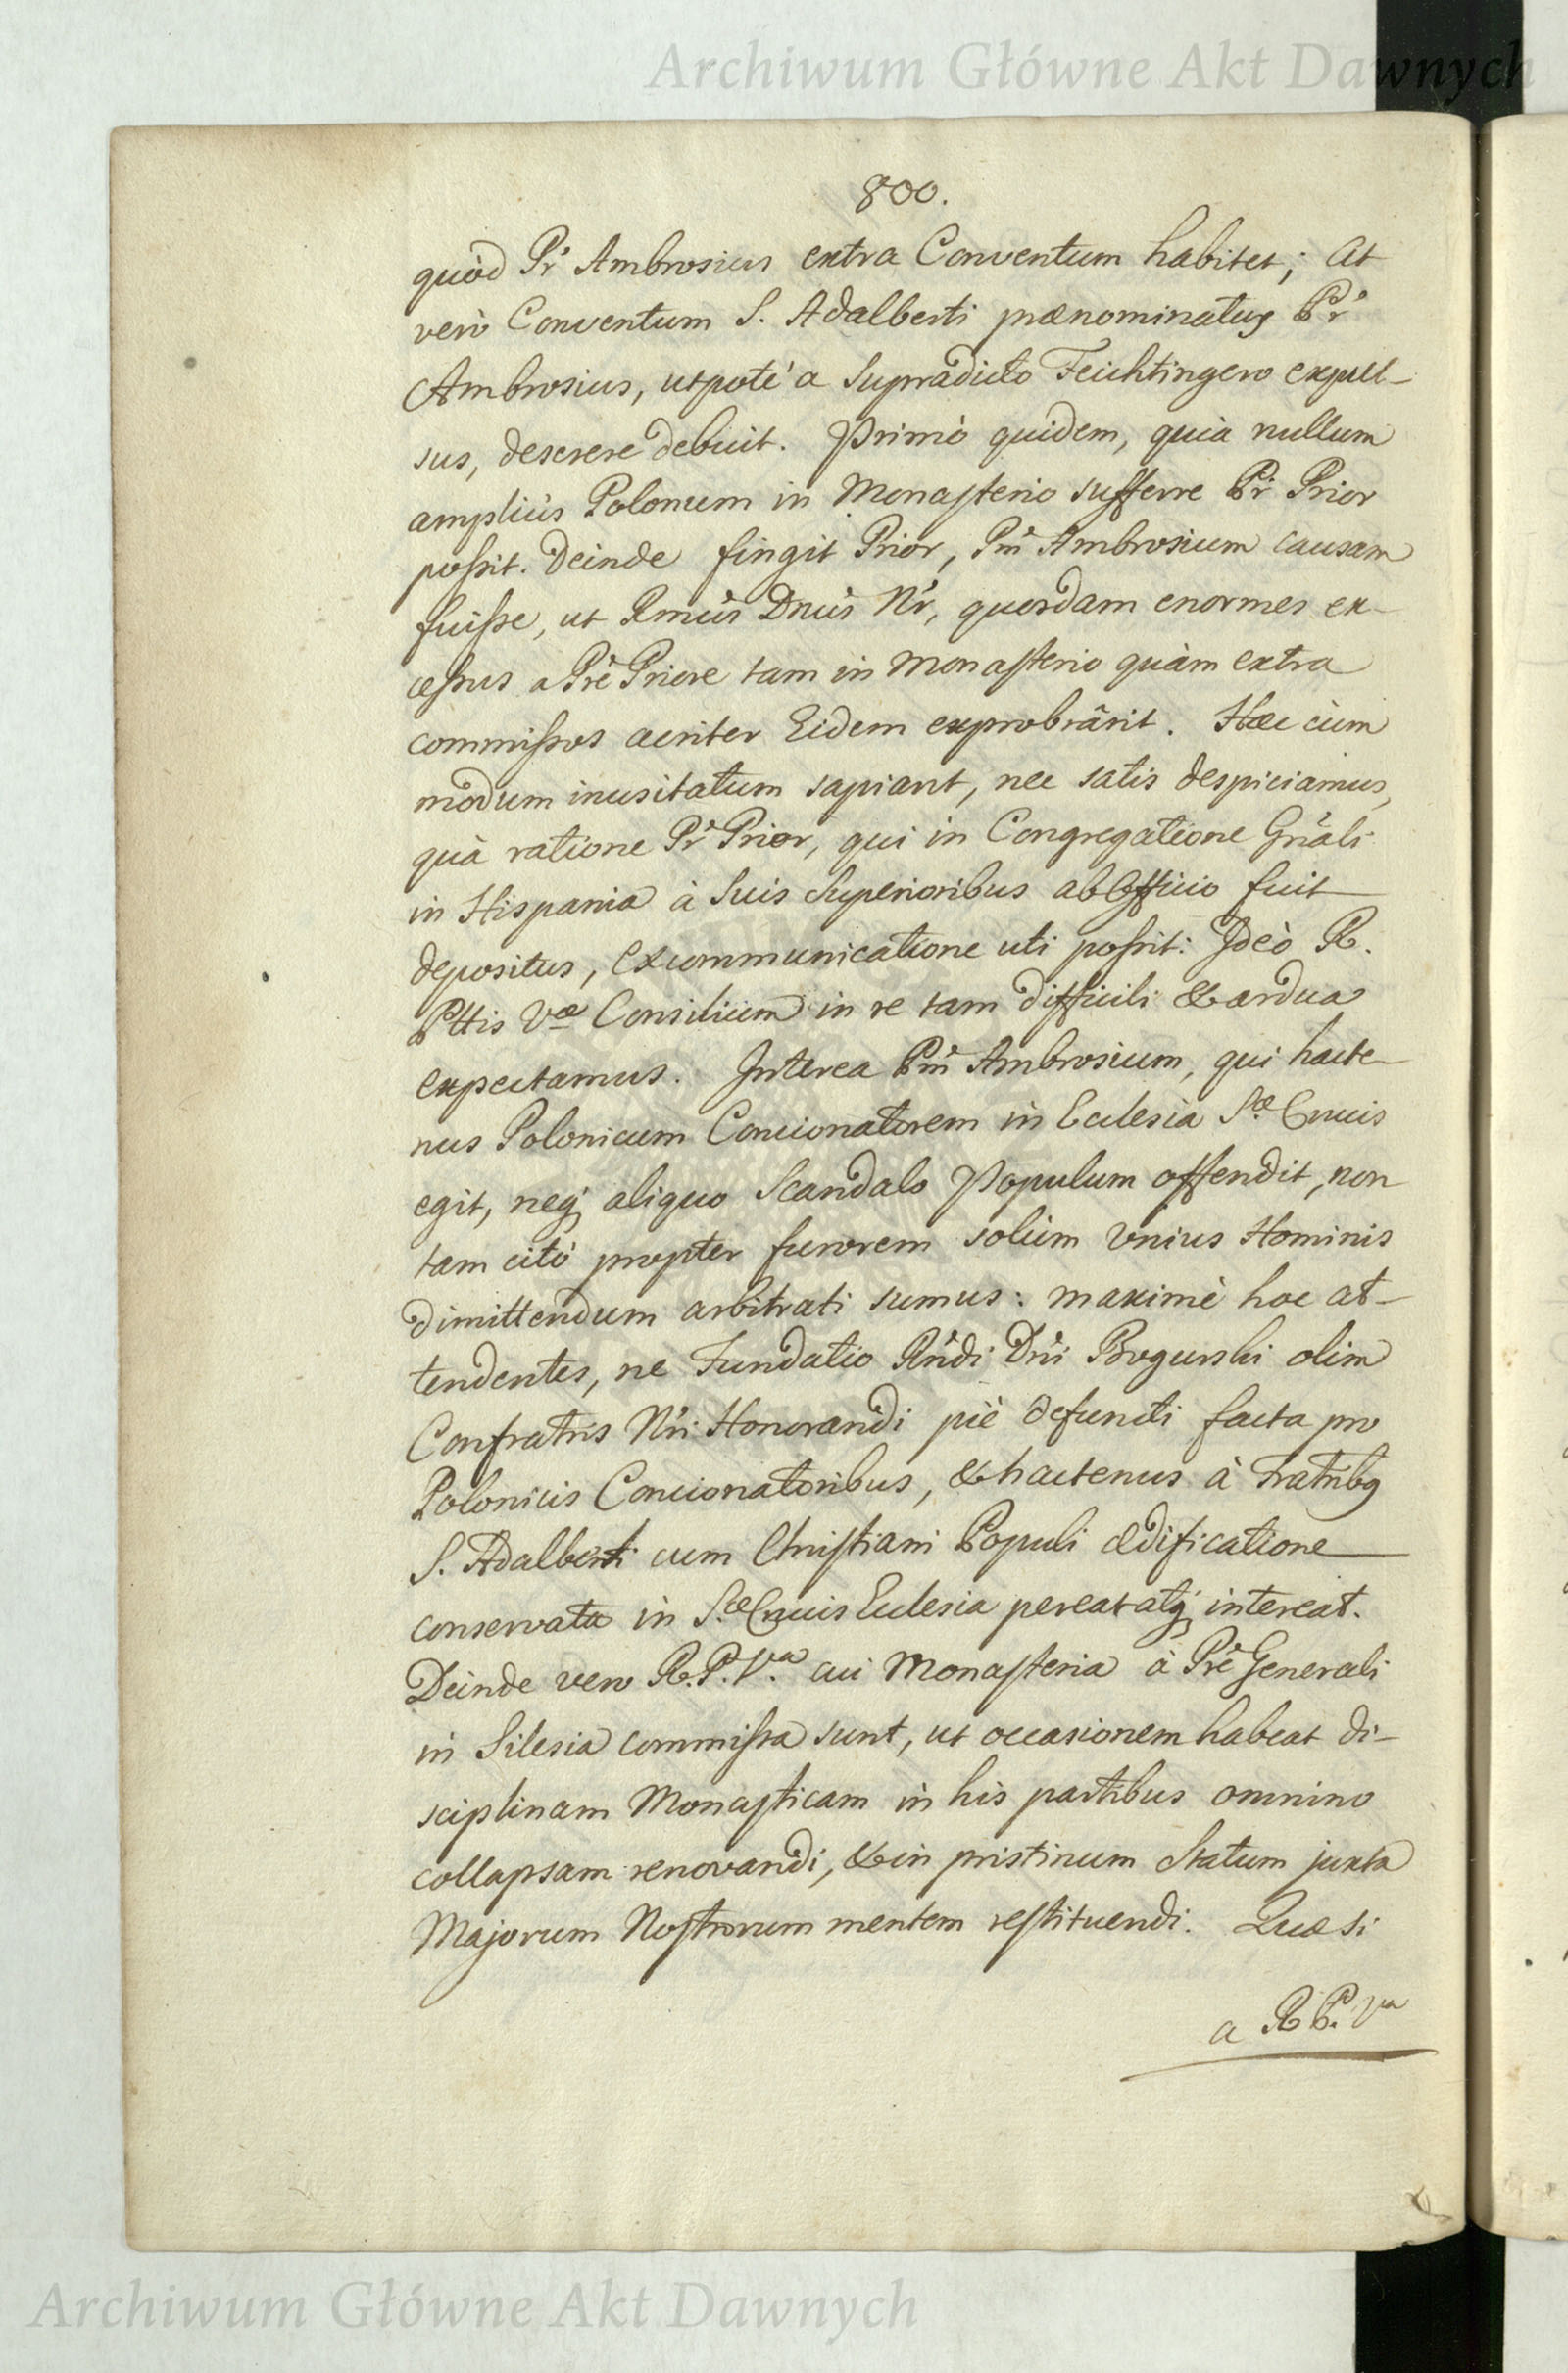 Archiwum Główne Akt Dawnych
800.
quòd Pr̃ Ambrosius extra Conventum habitet; At
verò Conventum S. Adalberti prænominatus Pr̃
Ambrosius, utpotè a Supradicto Feichtingero expul-
sus, deserere debuit. Primò quidem, quia nullum
ampliùs Polonum in Monasterio sufferre Pr̃ Prior
possit. Deinde fingit Prior, Pr̃m Ambrosium causam
fuisse, ut Rm̃us Dnũs Nr̃, quosdam enormes ex-
cessus a Pr̃e Priore tam in Monasterio quàm extra
commissos acriter Eidem exprobrârit. Hæc cùm
modum inusitatum sapiant, nec satis despiciamus,
quà ratione Pr̃ Prior, qui in Congregatione Gn̄ali
in Hispania à suis Superioribus ab Officio fuit
depositus, Excommunicatione uti possit: Ideò R.
Pttis Væ Consilium in re tam difficili & ardua
expectamus. Interea Pr̃m Ambrosium, qui hacte-
nus Polonicum Concionatorem in Ecclesia S.æ Crucis
egit, neq; aliquo Scandalo Populum offendit, non
tam citò propter furorem solùm Vnius Hominis
dimittendum arbitrati sumus: maximè hoc at-
tendentes, ne Fundatio Rñdi Dñi Bogurski olim
Confratris Nr̃i Honorandi piè defuncti facta pro
Polonicis Concionatoribus, & hactenus à Fratribg
S. Adalberti cum Christiani Populi ædificatione
conservata in S.æ Crucis Ecclesia pereat atq; intereat.
Deinde vero R.P.V.a cui Monasteria à Pr̃e Generali
in Silesia commissa sunt, ut occasionem habeat di-
sciplinam Monasticam in his partibus omnino
collapsam renovandi, & in pristinum Statum juxta
Majorum Nostrorum mentem restituendi. Quæ si
a R P. Va
Archiwum Główne Akt Dawnych